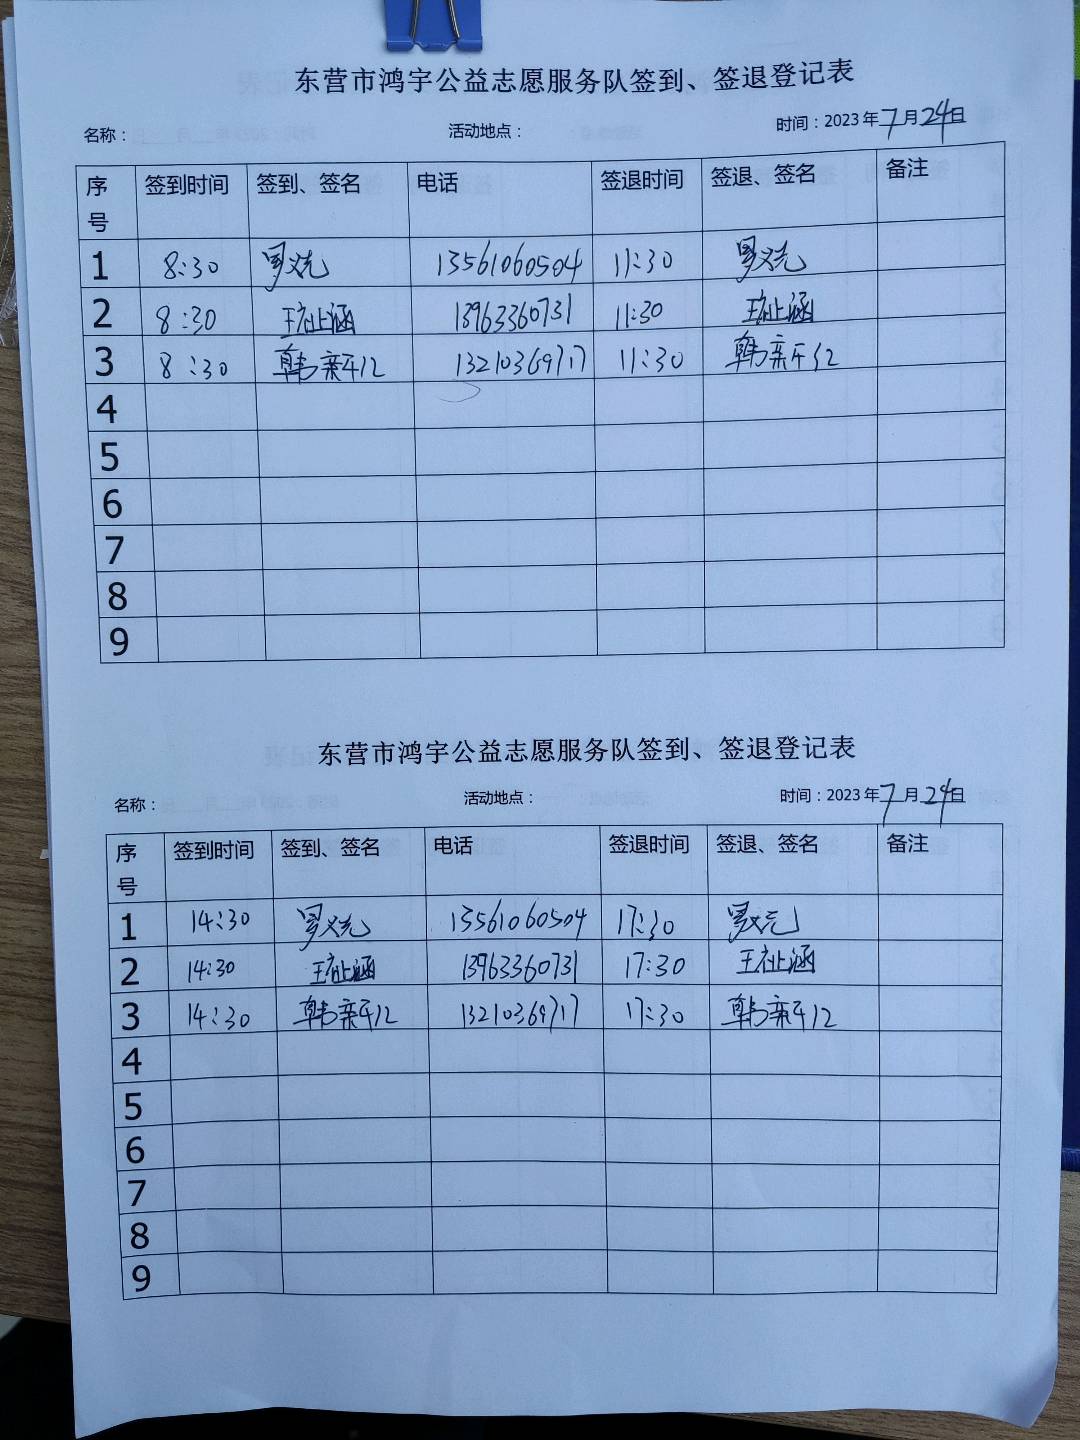 东营市鸿宇公益志愿服务队签到、签退登记表
名称： 活动地点： 时间：2023年7月24日
序号 签到时间 签到、签名 电话 签退时间 签退、签名 备注
1 8:30 13561060504 11:30
2 8:30 王祉涵 13963360731 11:30 王祉涵
3 8:30 韩亲红 13210369717 11:30 韩亲红
4
5
6
7
8
9
东营市鸿宇公益志愿服务队签到、签退登记表
名称： 活动地点： 时间：2023年7月24日
序号 签到时间 签到、签名 电话 签退时间 签退、签名 备注
1 14:30 13561060504 17:30
2 14:30 王祉涵 13963360731 17:30 王祉涵
3 14:30 韩亲红 13210369717 17:30 韩亲红
4
5
6
7
8
9